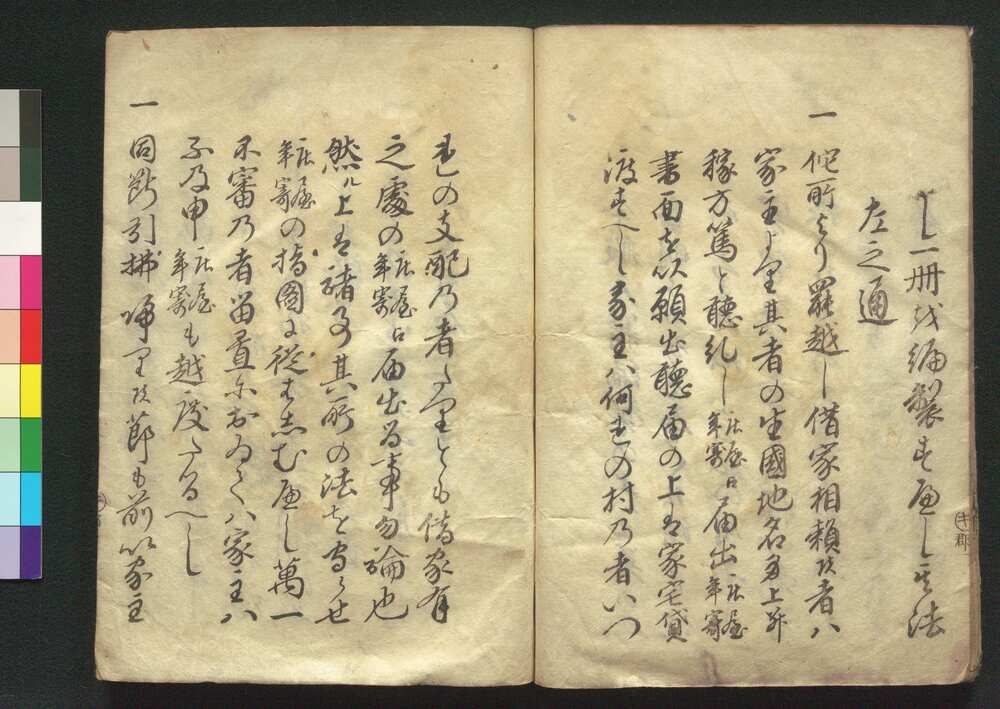 し一冊を編製すへし其法
左之通
一
他所より罷越し借家相頼候者ハ
家主より其者の生國地名身上并
稼方篤と聴糺し庄屋年寄江届出庄屋年寄
書面を以願出聴届の上は家宅貸
渡すへし家主ハ何れの村乃者いつ
れの支配乃者たりとも借家有
之處の庄屋年寄江届出る事勿論也
然ル上は諸事其所の法を守らせ
庄屋年寄の指図に従はしむへし萬一
不審乃者留置におゐてハ家主ハ
不及申庄屋年寄も越度たるへし
一
同断引拂帰り候節も前以家主
キ郡